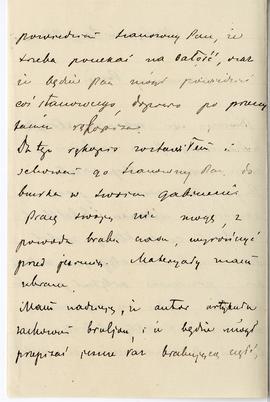 powiedział Szanowny Pan, że
trzeba poczekać na całość, oraz
iż będzie Pan mógł powiedzieć
coś stanowczego, dopiero po przeczy
taniu rękopisu.
Dotąd rękopis zostawiłem i
schował go Szanowny Pan do
biurka w swoim gabinecie
Pracy swojej nie mogę, z
powodu braku czasu, wykończyć
przed jesienią. Materyały mam
zebrane.
Mam nadzieję, iż autor artykułu
zachował brulion, i iż będzie mógł
przepisać jeszcze raz brakującą część,